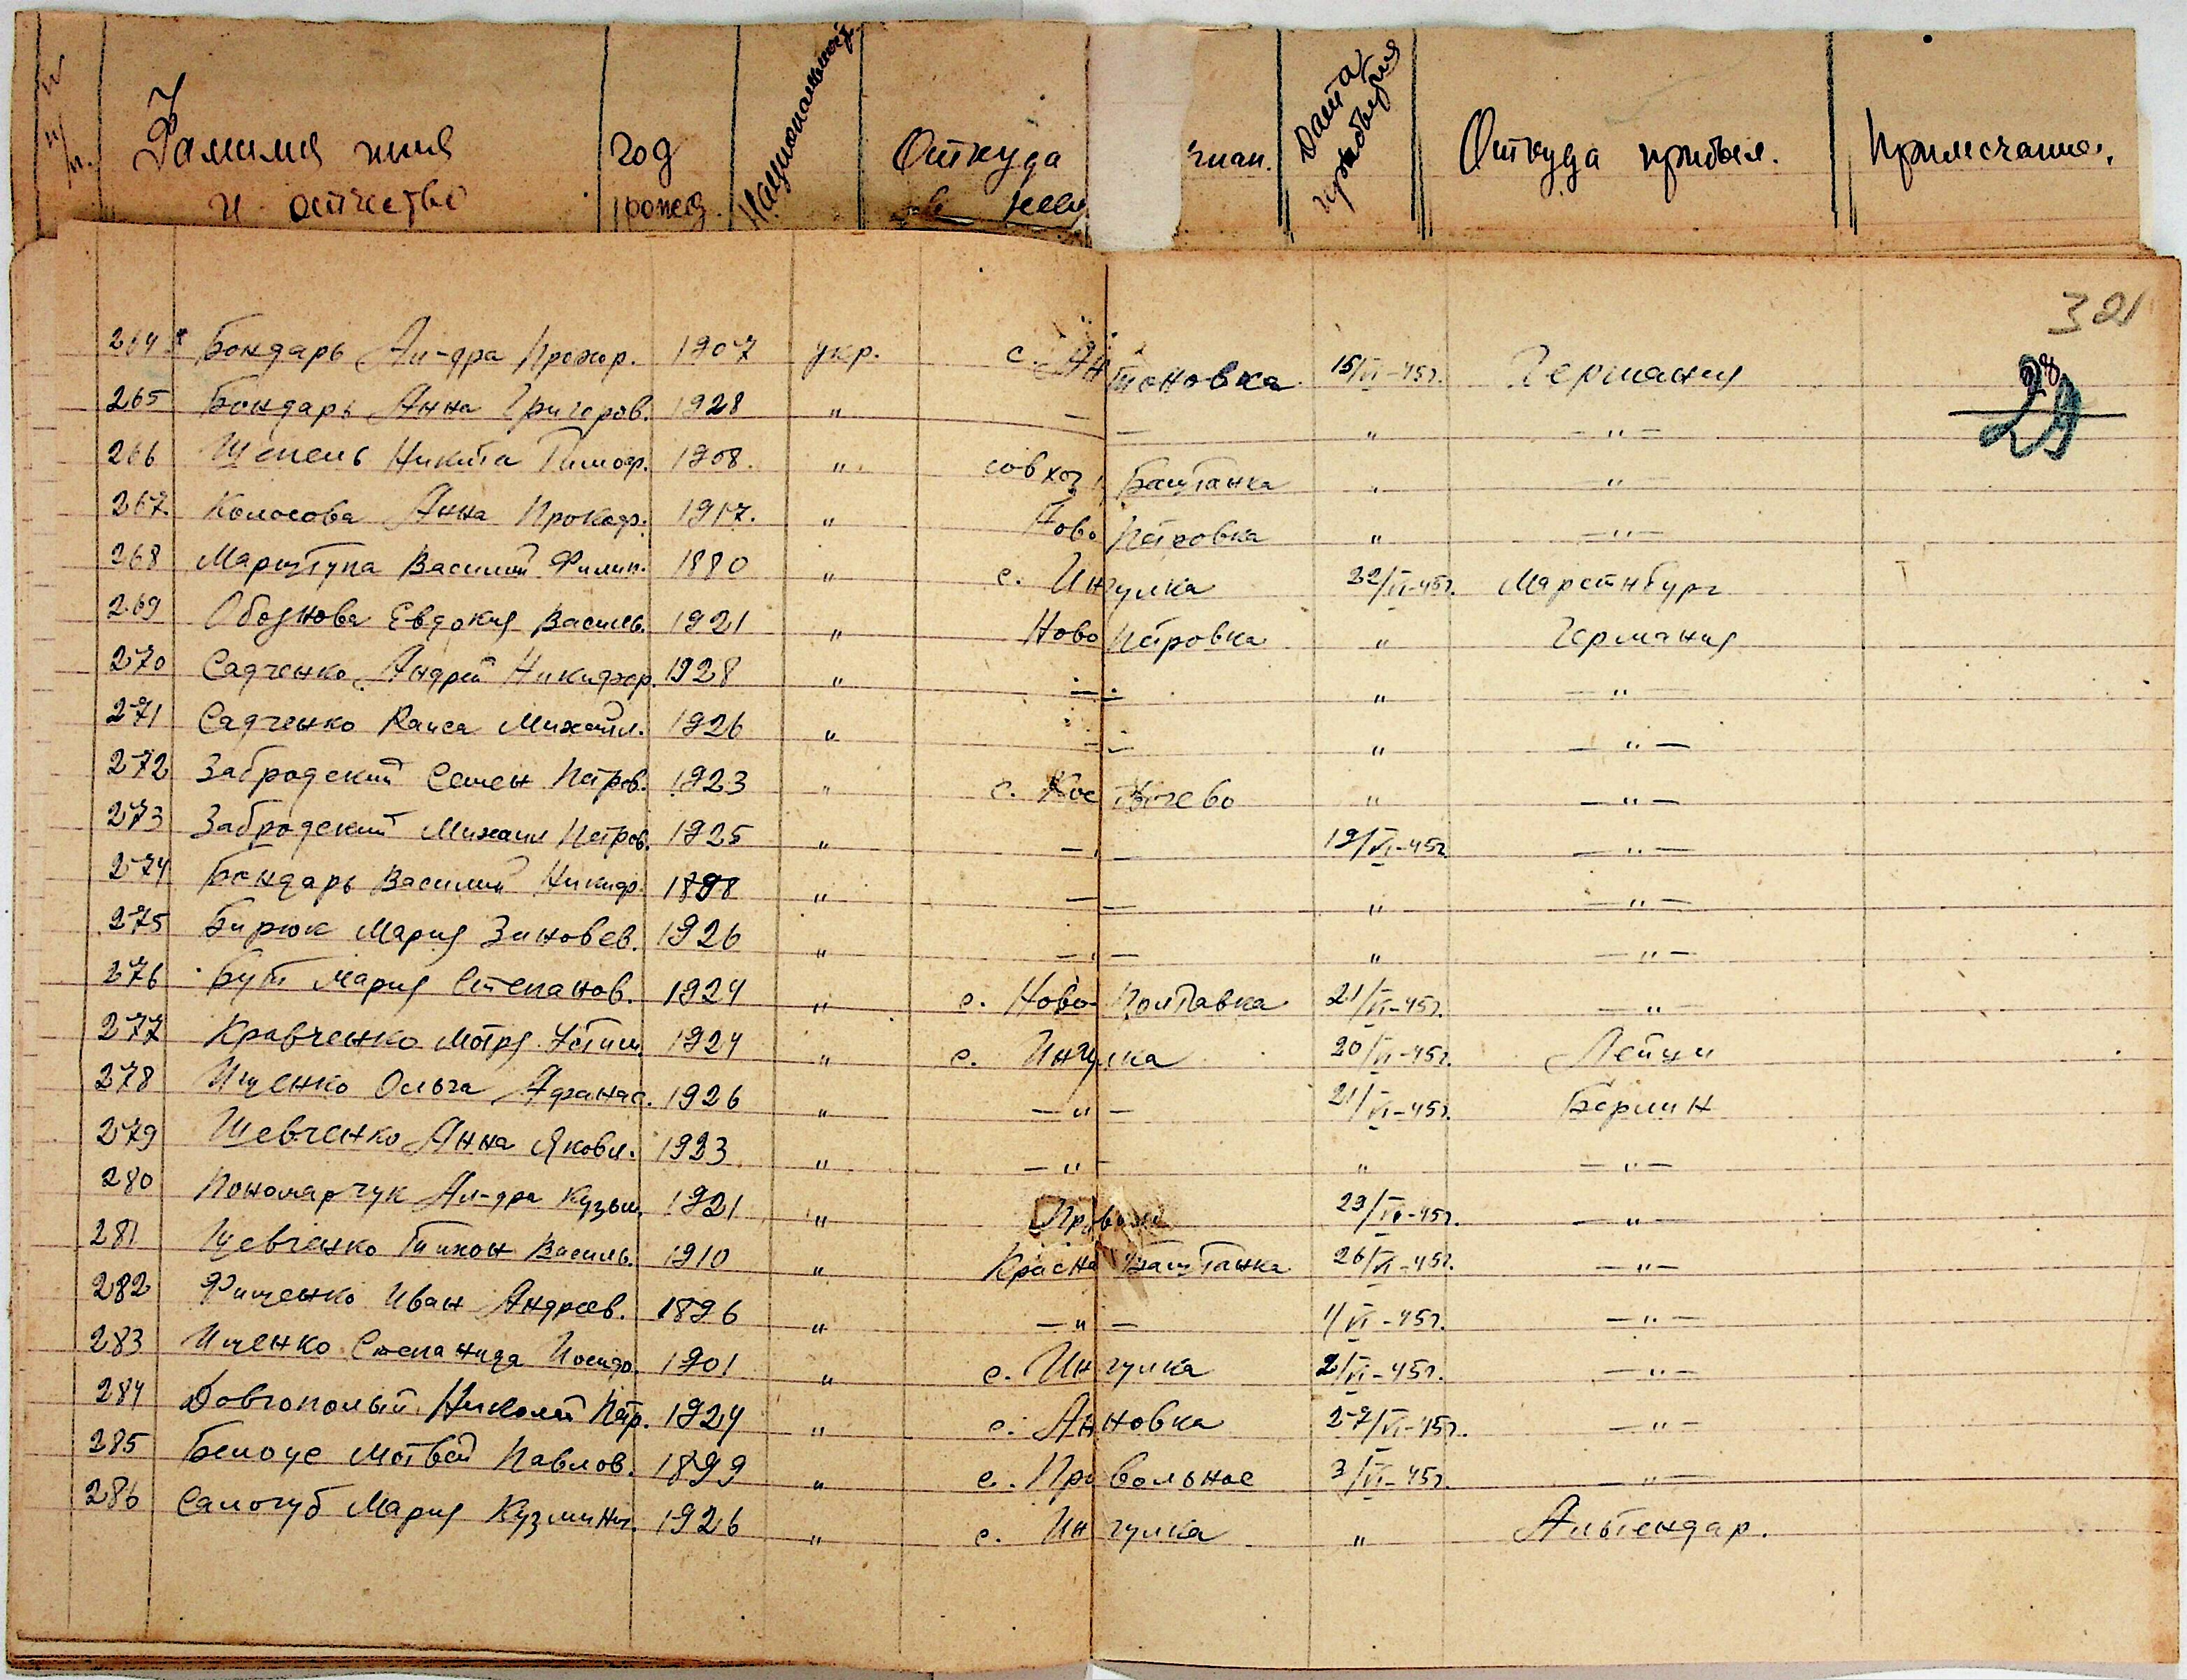 № п/п. Фамилия имя и отчество год рожд. Национальность Откуда чиан. Дата прибытия Откуда прибыл. Примечание.
321
28
29
264 Бондарь Ал-дра Прохор. 1907 укр. с. Антоновка 15/VI-45г. Германия
265 Бондарь Анна Григоров. 1928 " — — " —"—
266 Шепель Никита Тимоф. 1908. " совхоз Баштанка " —"—
267. Колосова Анна Прокоф. 1917. " Ново Петровка " —"—
268 Марштупа Василий Филип. 1880 " с. Ингулка 22/VI-45г. Марстнбург
269 Обознова Евдокия Василь. 1921 " Ново Петровка " Германия
270 Садченко Андрей Никифор. 1928 " — — " —"—
271 Садченко Раиса Михайл. 1926 " — — " —"—
272 Забродский Семен Петров. 1923 " с. Костычево " —"—
273 Забродский Михаил Петров. 1925 " — — 19/VI-45г. —"—
274 Бондарь Василий Никиф. 1898 " — — " —"—
275 Бирюк Мария Зиновев. 1926 " — — " —"—
276 Бут Мария Степанов. 1924 " с. Ново-Полтавка 21/VI-45г. —"—
277 Кравченко Мотря Устим. 1924 " с. Ингулка 20/VI-45г. Лейпци
278 Ищенко Ольга Афанас. 1926 " —"— 21/VI-45г. Берлин
279 Шевченко Анна Яковл. 1923 " —"— " —"—
280 Пономарчук Ал-дра Кузьм. 1921 " 23/VI-45г. —"—
281 Шевченко Тихон Василь. 1910 " Красна Баштанка 26/VI-45г. —"—
282 Фищенко Иван Андреев. 1896 " —"— 1/VI-45г. —"—
283 Ищенко Степанида Иосиф. 1901 " с. Ингулка 2/VI-45г. —"—
284 Довгополый Николай Петр. 1924 " с. Анновка 27/VI-45г. —"—
285 Белоус Мотвей Павлов. 1899 " с. Привольное 3/VI-45г. —"—
286 Салогуб Мария Кузминич. 1926 " с. Ингулка " Альтендар.